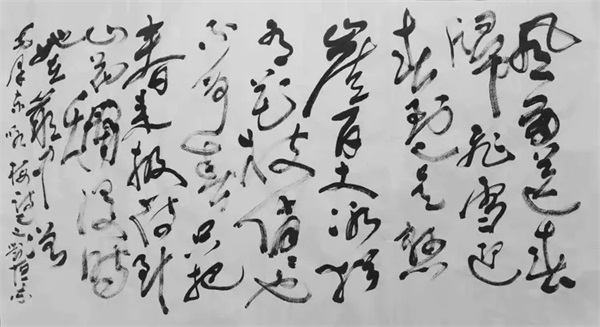 風雨送春
歸飛雪迎
春到已是懸
崖百丈冰猶
有花枝俏〻也
不争春只把
春来报待到
山花爛漫时
她在叢中笑
毛泽东咏梅詩